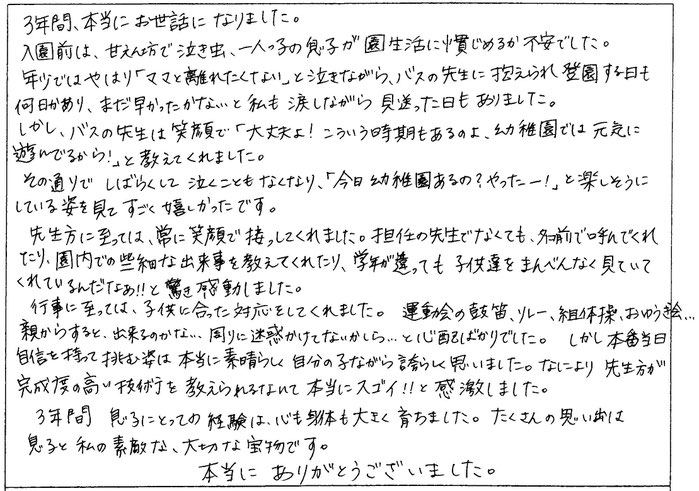 3年間、本当にお世話になりました。
入園前は、甘えん方で泣き虫、一人っ子の息子が園生活に慣じめるか不安でした。
年少ではやはり「ママと離れたくない」と泣きながら、バスの先生に抱えられ登園する日も
何日かあり、まだ早かったかな…と私も涙しながら見送った日もありました。
しかし、バスの先生は笑顔で「大丈夫よ！こういう時期もあるのよ、幼稚園では元気に
遊んでるから！」と教えてくれました。
その通りでしばらくして泣くこともなくなり、「今日幼稚園あるの？やったー！」と楽しそうに
している姿を見てすごく嬉しかったです。
先生方に至っては、常に笑顔で接っしてくれました。担任の先生でなくても、名前で呼んでくれ
たり、園内での些細な出来事を教えてくれたり、学年が違っても子供達をまんべんなく見ていて
くれているんだなぁ!!と驚き感動しました。
行事に至っては、子供に合った対応をしてくれました。運動会の鼓笛、リレー、組体操、おゆうぎ会…
親からすると、出来るのかな…周りに迷惑かけてないかしら…と心配ばかりでした。しかし本番当日
自信を持って挑む姿は本当に素晴らしく自分の子ながら誇らしく思いました。なにより先生方が
完成度の高い技術を教えられるなんて本当にスゴイ!!と感激しました。
3年間息子にとっての経験は、心も身体も大きく育ちました。たくさんの思い出は
息子と私の素敵な、大切な宝物です。
本当にありがとうございました。